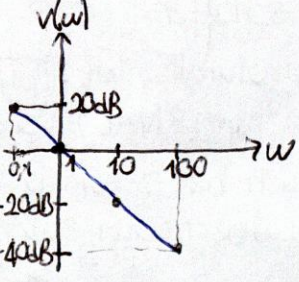 v(ω)
20dB
ω
0,1 1 10 100
-20dB
-40dB